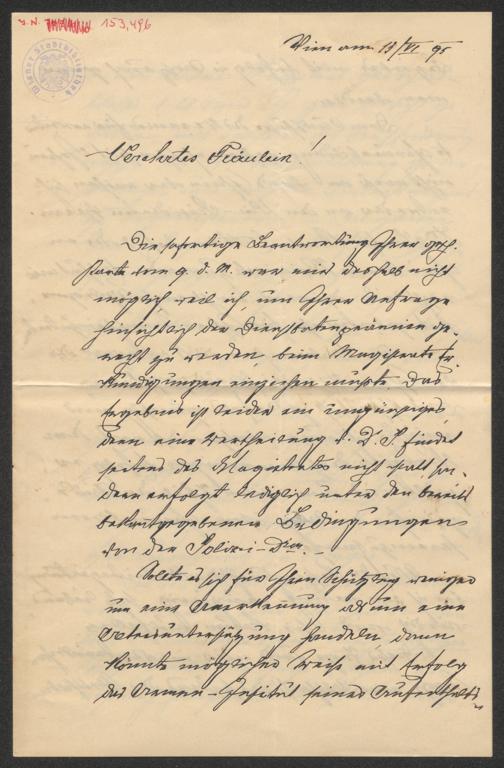 J. N. 153,496
Wiener Stadtbibliothek
Wien am 13/VI 95
Verehrtes Fräulein!
Die sofortige Beantwortung Ihrer gesch.
Karte vom 9. d. M. war mir deshalb nicht
möglich weil ich, um Ihrer Anfrage
hinsichtlich der Dienstbotenprämien ge-
recht zu werden, beim Magistrate Er-
kundigungen einziehen mußte. Das
Ergebnis ist leider ein ungünstiges,
denn eine Vertheilung v. D. P. findet
seitens des Magistrates nicht statt, son-
dern erfolgt lediglich unter den bereits
bekanntgegebenen Bedingungen
von der Polizei-Dion. —
Sollte es sich für Ihren Schützling weniger
um eine Anerkennung als um eine
Unterstützung handeln dann
könnte möglicher Weise mit Erfolg
das Armen-Institut seines Aufenthalts-